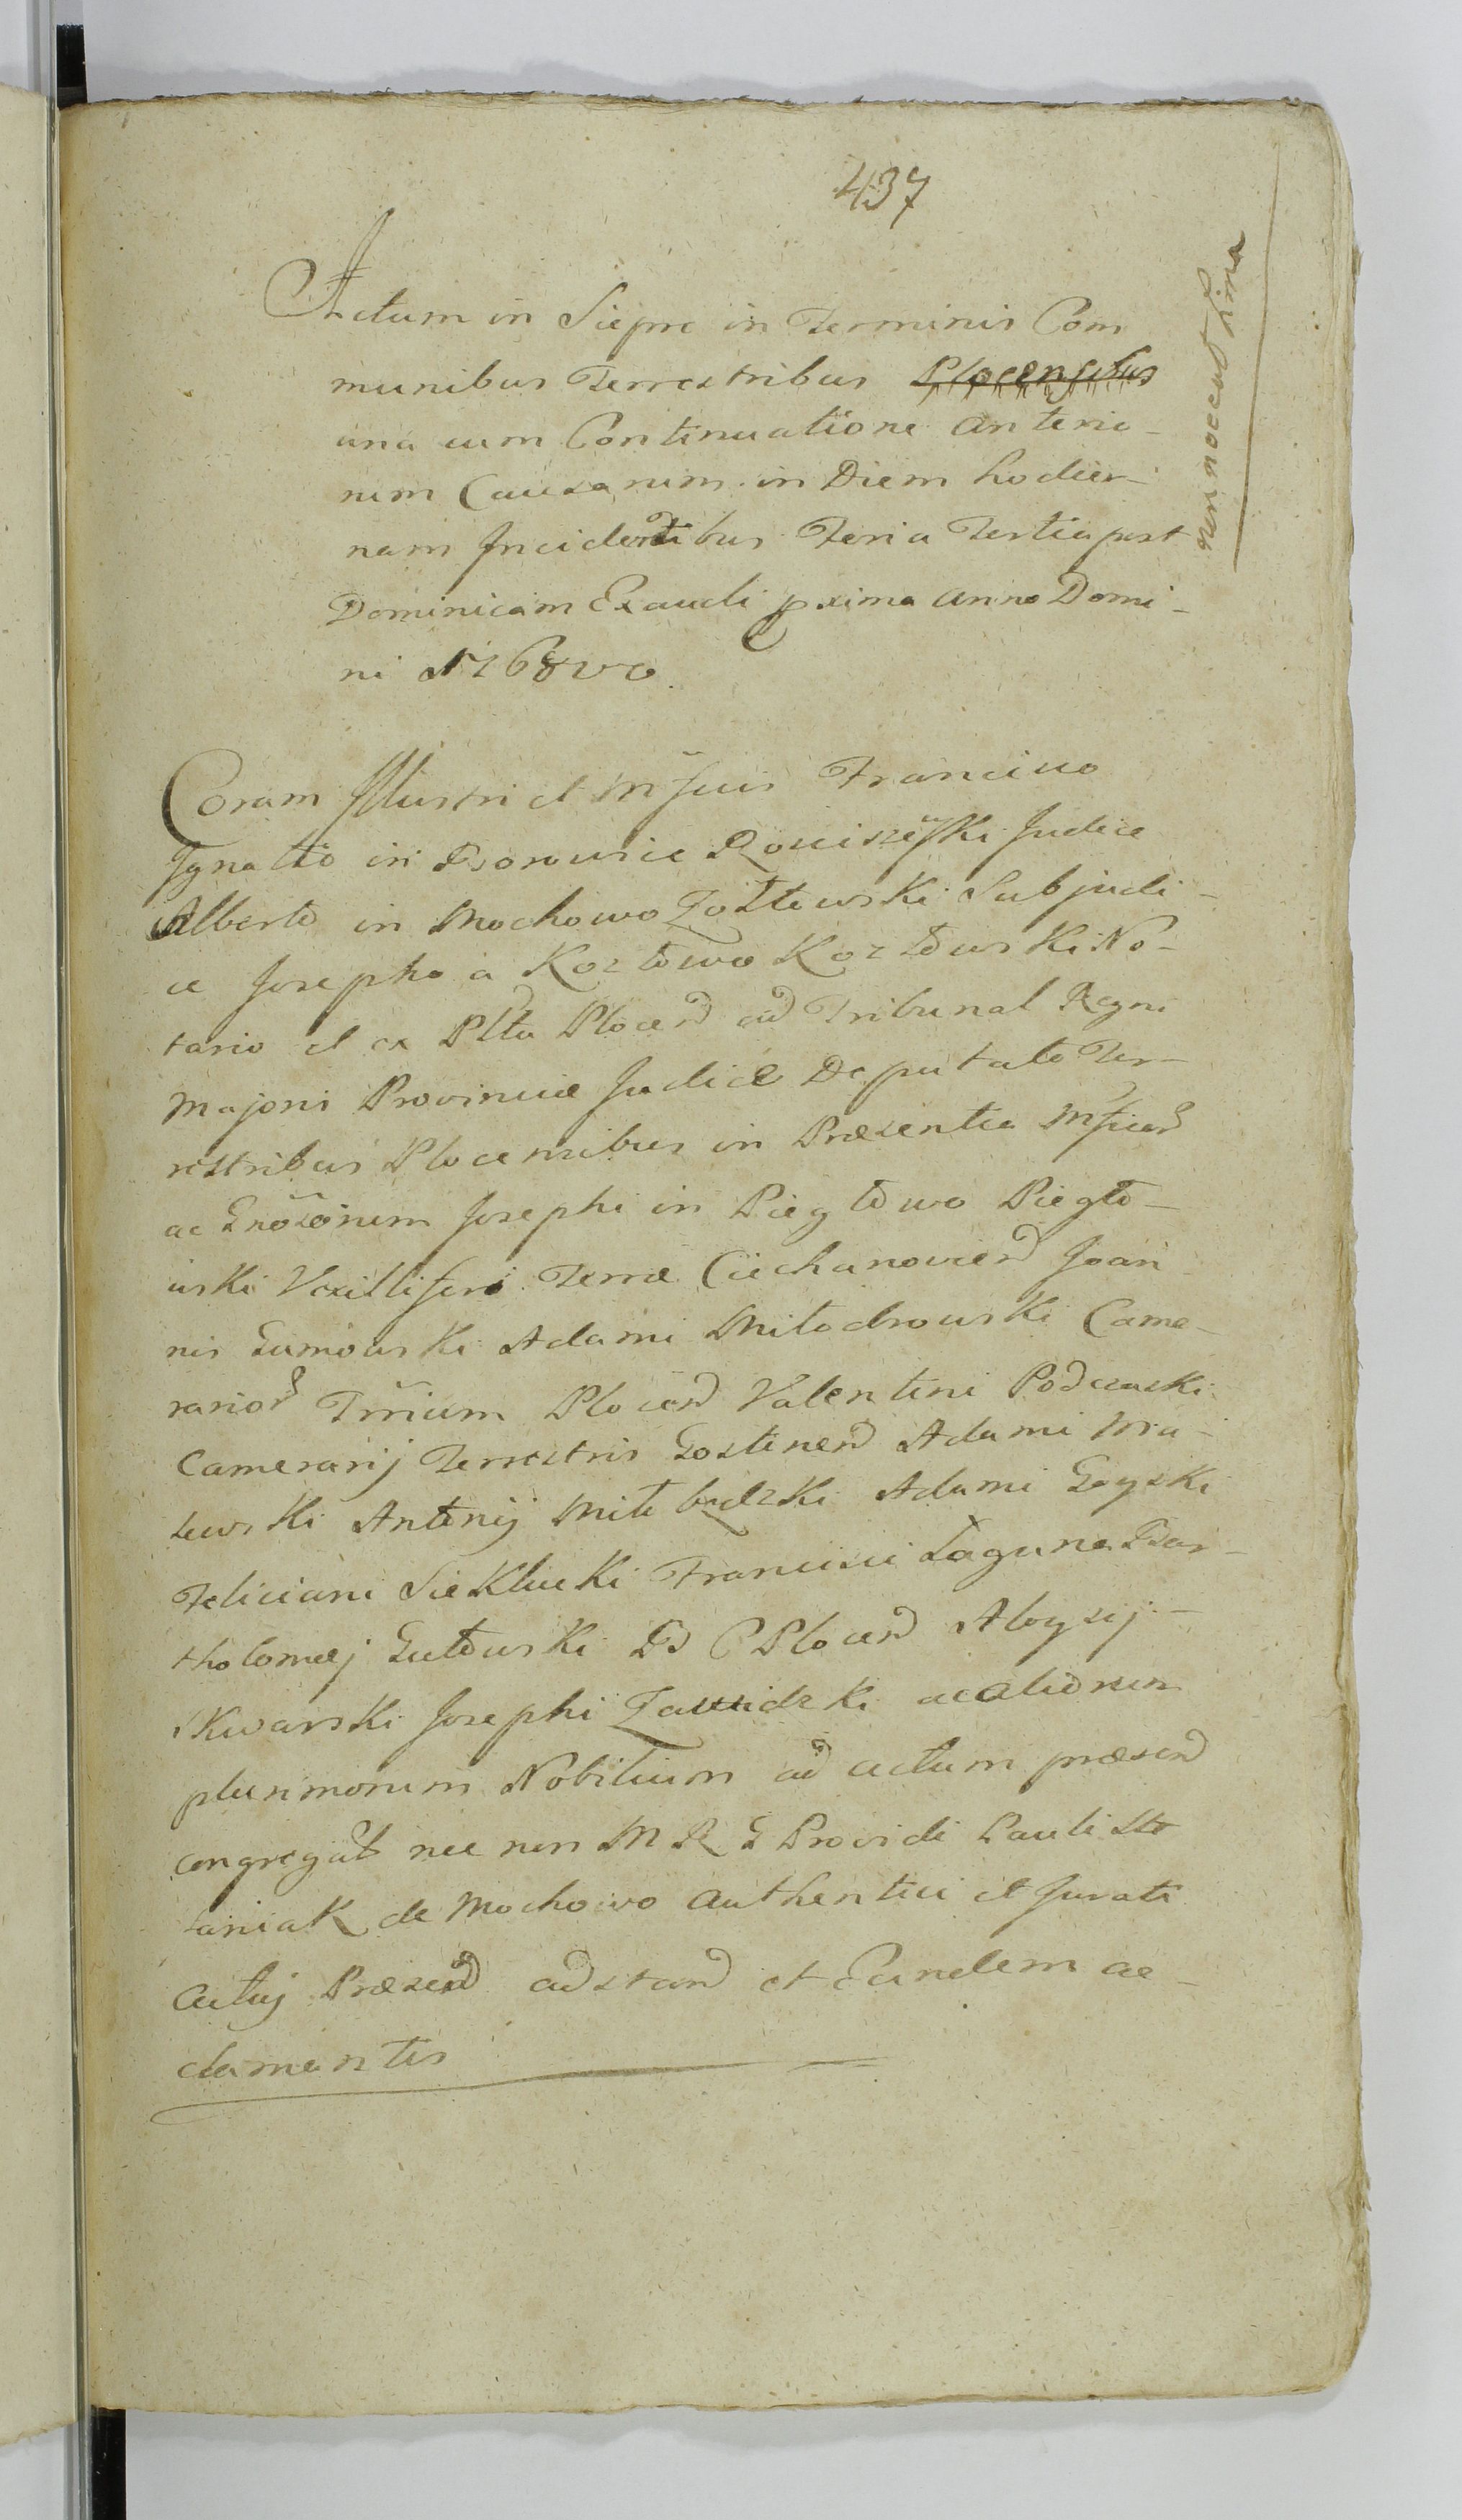 437
Actum in Siepre in Terminis Com
munibus Terrestribus Plocensibus
una cum Continuatione anterio-
rum Causarum in Diem hodier-
nam Incidentibus Feria Tertia post
Dominicam Exaudi pxima Anno Domi-
ni 1768vo
non nocet Lima
Coram Illustri et Mfcis Francisco
Ignatio in Borowice Rosciszewski Judice
Alberto in Mochowo Zółtowski Subjudi-
ce Josepho a Kozłowo Kozłowski No-
tario et ex Pltu Plocen ad Tribunal Regni
Majoris Provinciæ Judice Deputato Ter-
restribus Plocensibus in Præsentia Mficor
ac Gnosorum Josephi in Piegłowo Piegło-
wski Vexilliferi Terræ Ciechanovien Joan
nis Gumowski Adami Miłodrowski Came-
rarior Trrium Plocen Valentini Podczaski
Camerarij Terrestris Gostinen Adami Mra-
lewski Antonij Miłobędzki Adami Goyski
Feliciani Siekłucki Francisci Łaguna Bar-
tholomæj Gutowski B C Plocen Aloysij-
Skwarski Josephi Zawidzki ac aliorum
plurimorum Nobilium ad actum præsen
congregat nec non M R G Providi Pauli Sto
laniak de Mochowo Authentici et Jurati
Actuj Præsen adstan et Eundem ac-
clamantis